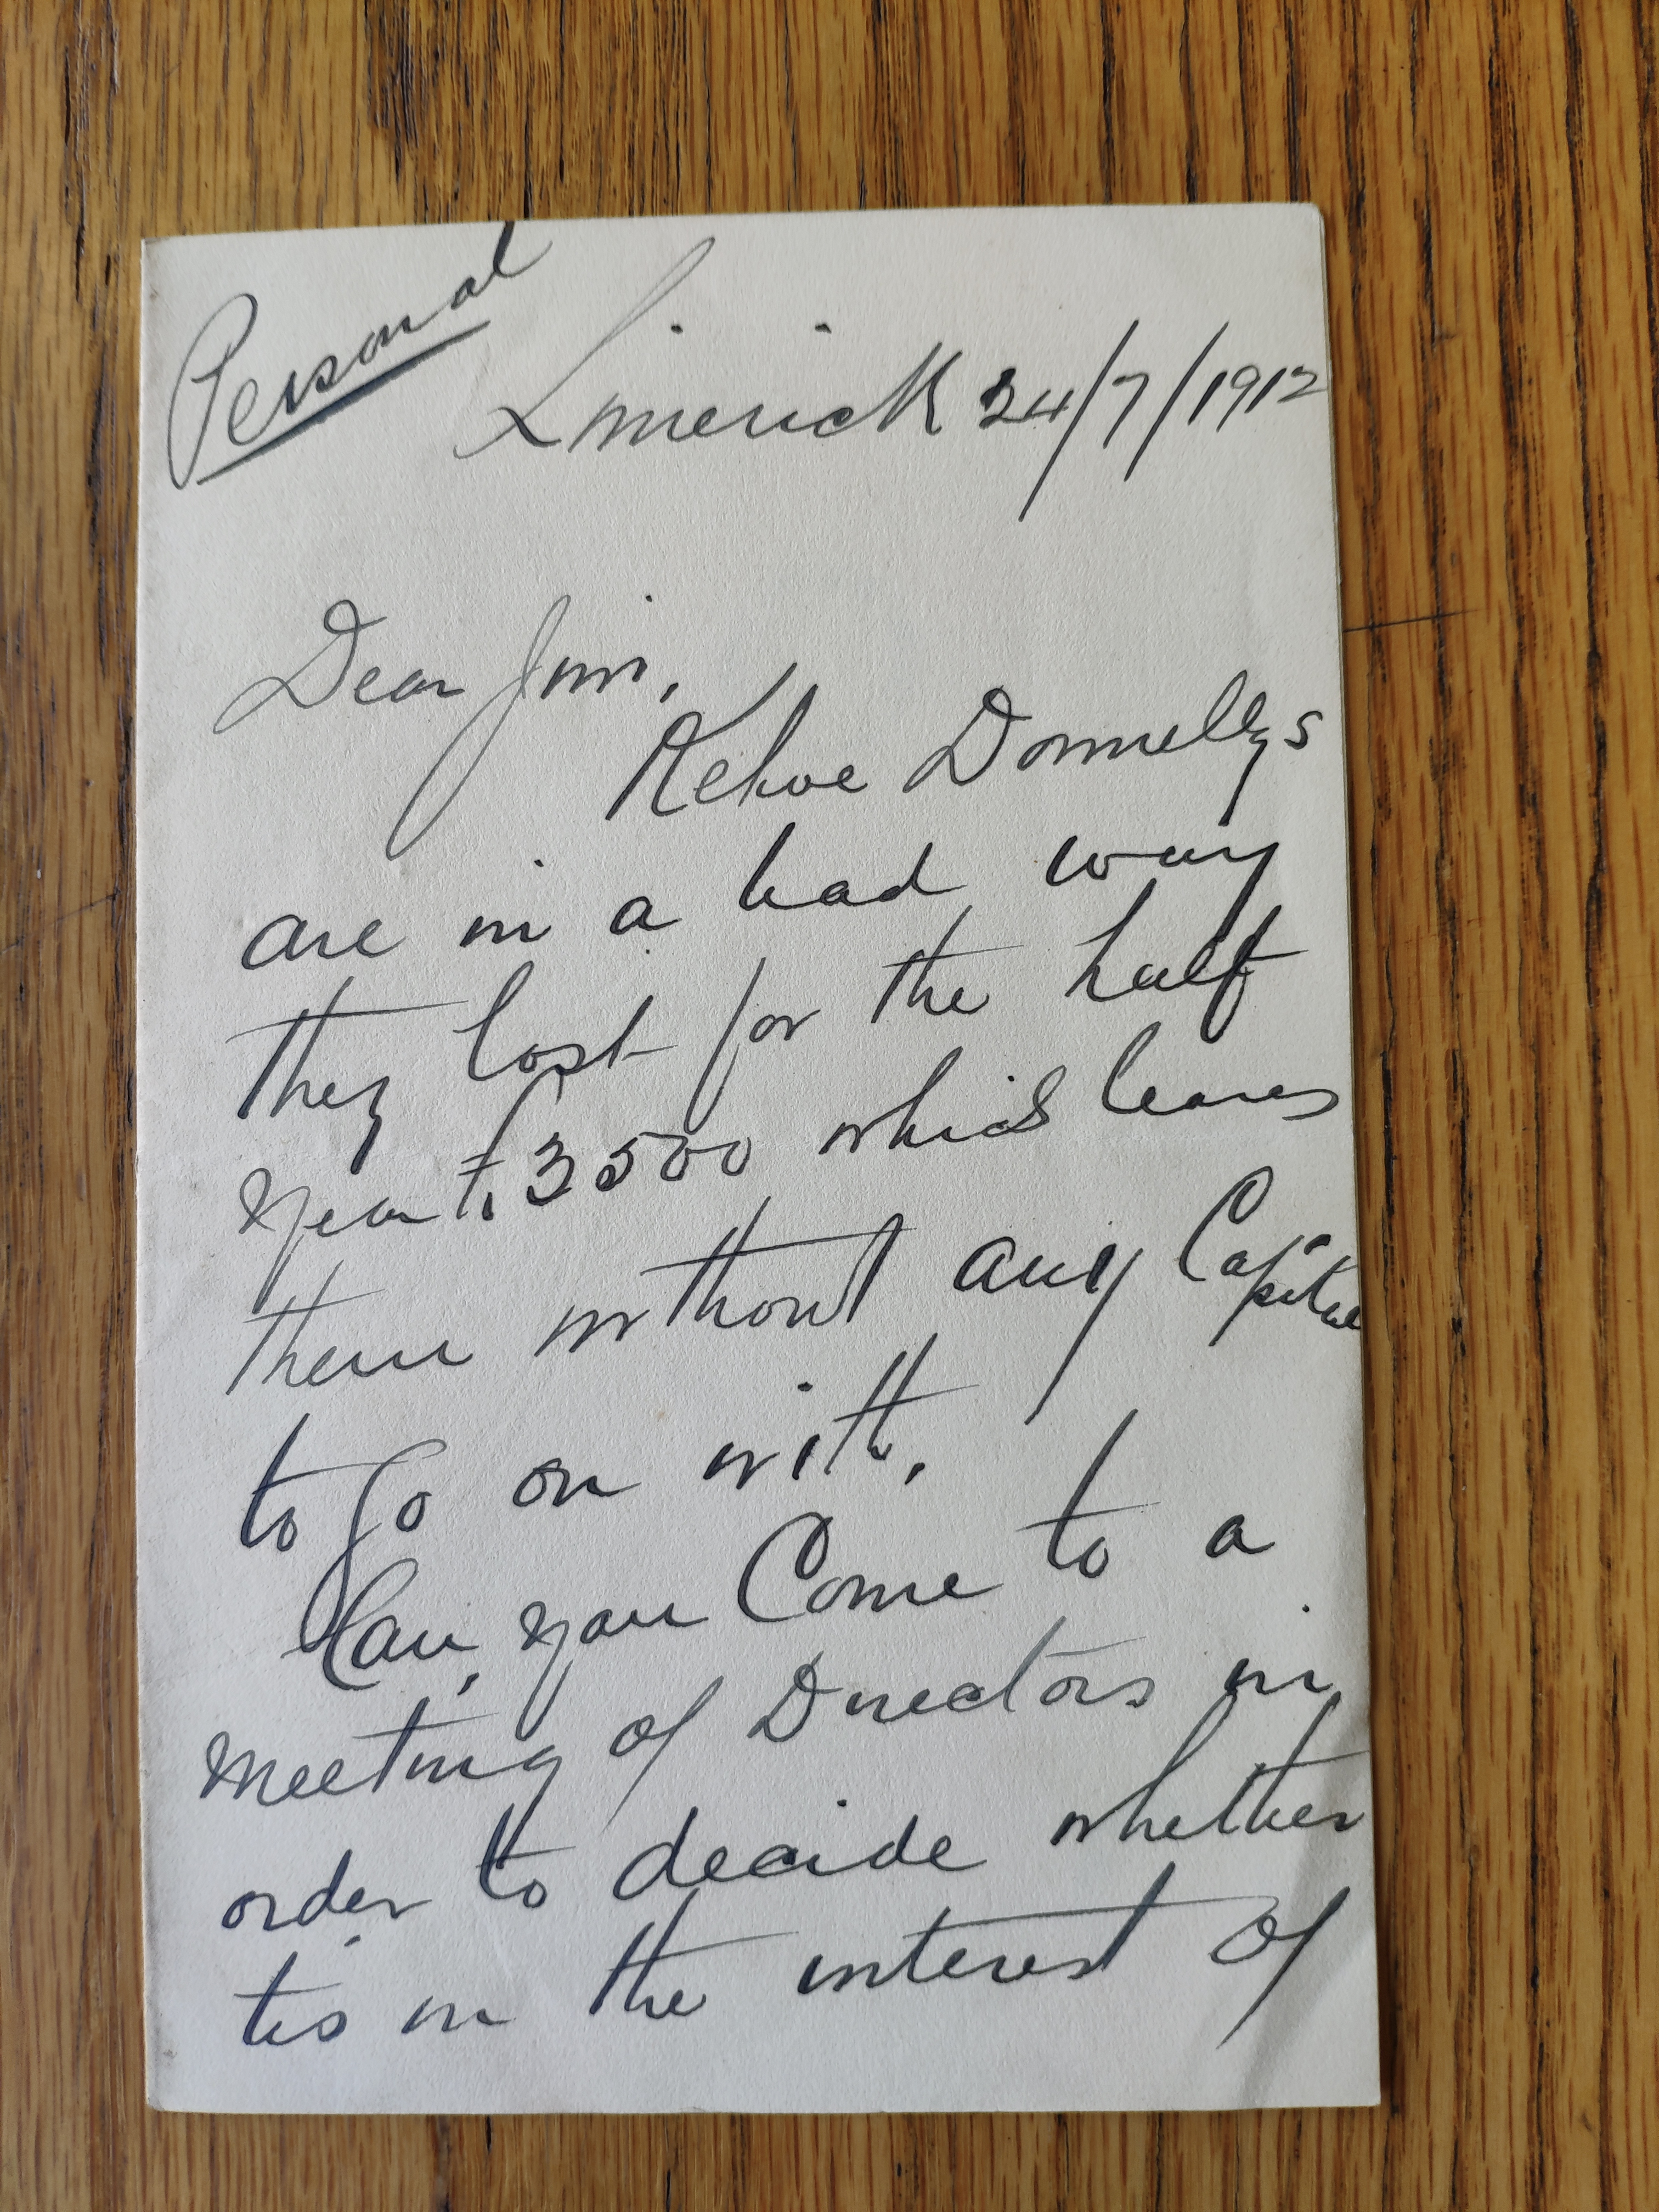 Personal
Limerick 24/7/1912
Dear Jim,
Kehoe Donnellys
are in a bad way
they lost for the half
year £3500 which leaves
them without any Capital
to go on with.
Can you Come to a
meeting of Directors in
order to decide whether
tis in the interest of